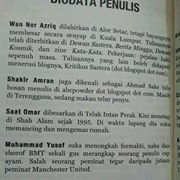 BIODATA PENULIS
Wan Nor Azriq dilahirkan di Alor Setar, tetapi bayangnya
membesar secara senyap di Kuala Lumpur. Tulisannya
diterbitkan di Dewan Sastera, Berita Minggu, Dewan
Kosmik, dan zine Kata-Kata. Pekerjaan: pejalan kaki
sepenuh masa. Tulisannya yang lain boleh didapati
menerusi blognya, Kritikus Sastera (dot blogspot dot com).
Shakir Amran juga dikenali sebagai Ahmad Sake bila
bosan menulis di abcpowder (dot blogspot dot com). Masih
di Terengganu, sedang makan telur penyu.
Saat Omar dibesarkan di Teluk Intan Perak. Kini menetap
di Shah Alam sejak 1995. Di waktu lapang dia suka
memancing dan mengembara.
Muhammad Yusof suka menonggak formaliti, satu dan
shortof BMT sekali gus merangkap seorang penulis cap
ayam. Salah seorang peminat tegar daripada jutaan
peminat Manchester United.